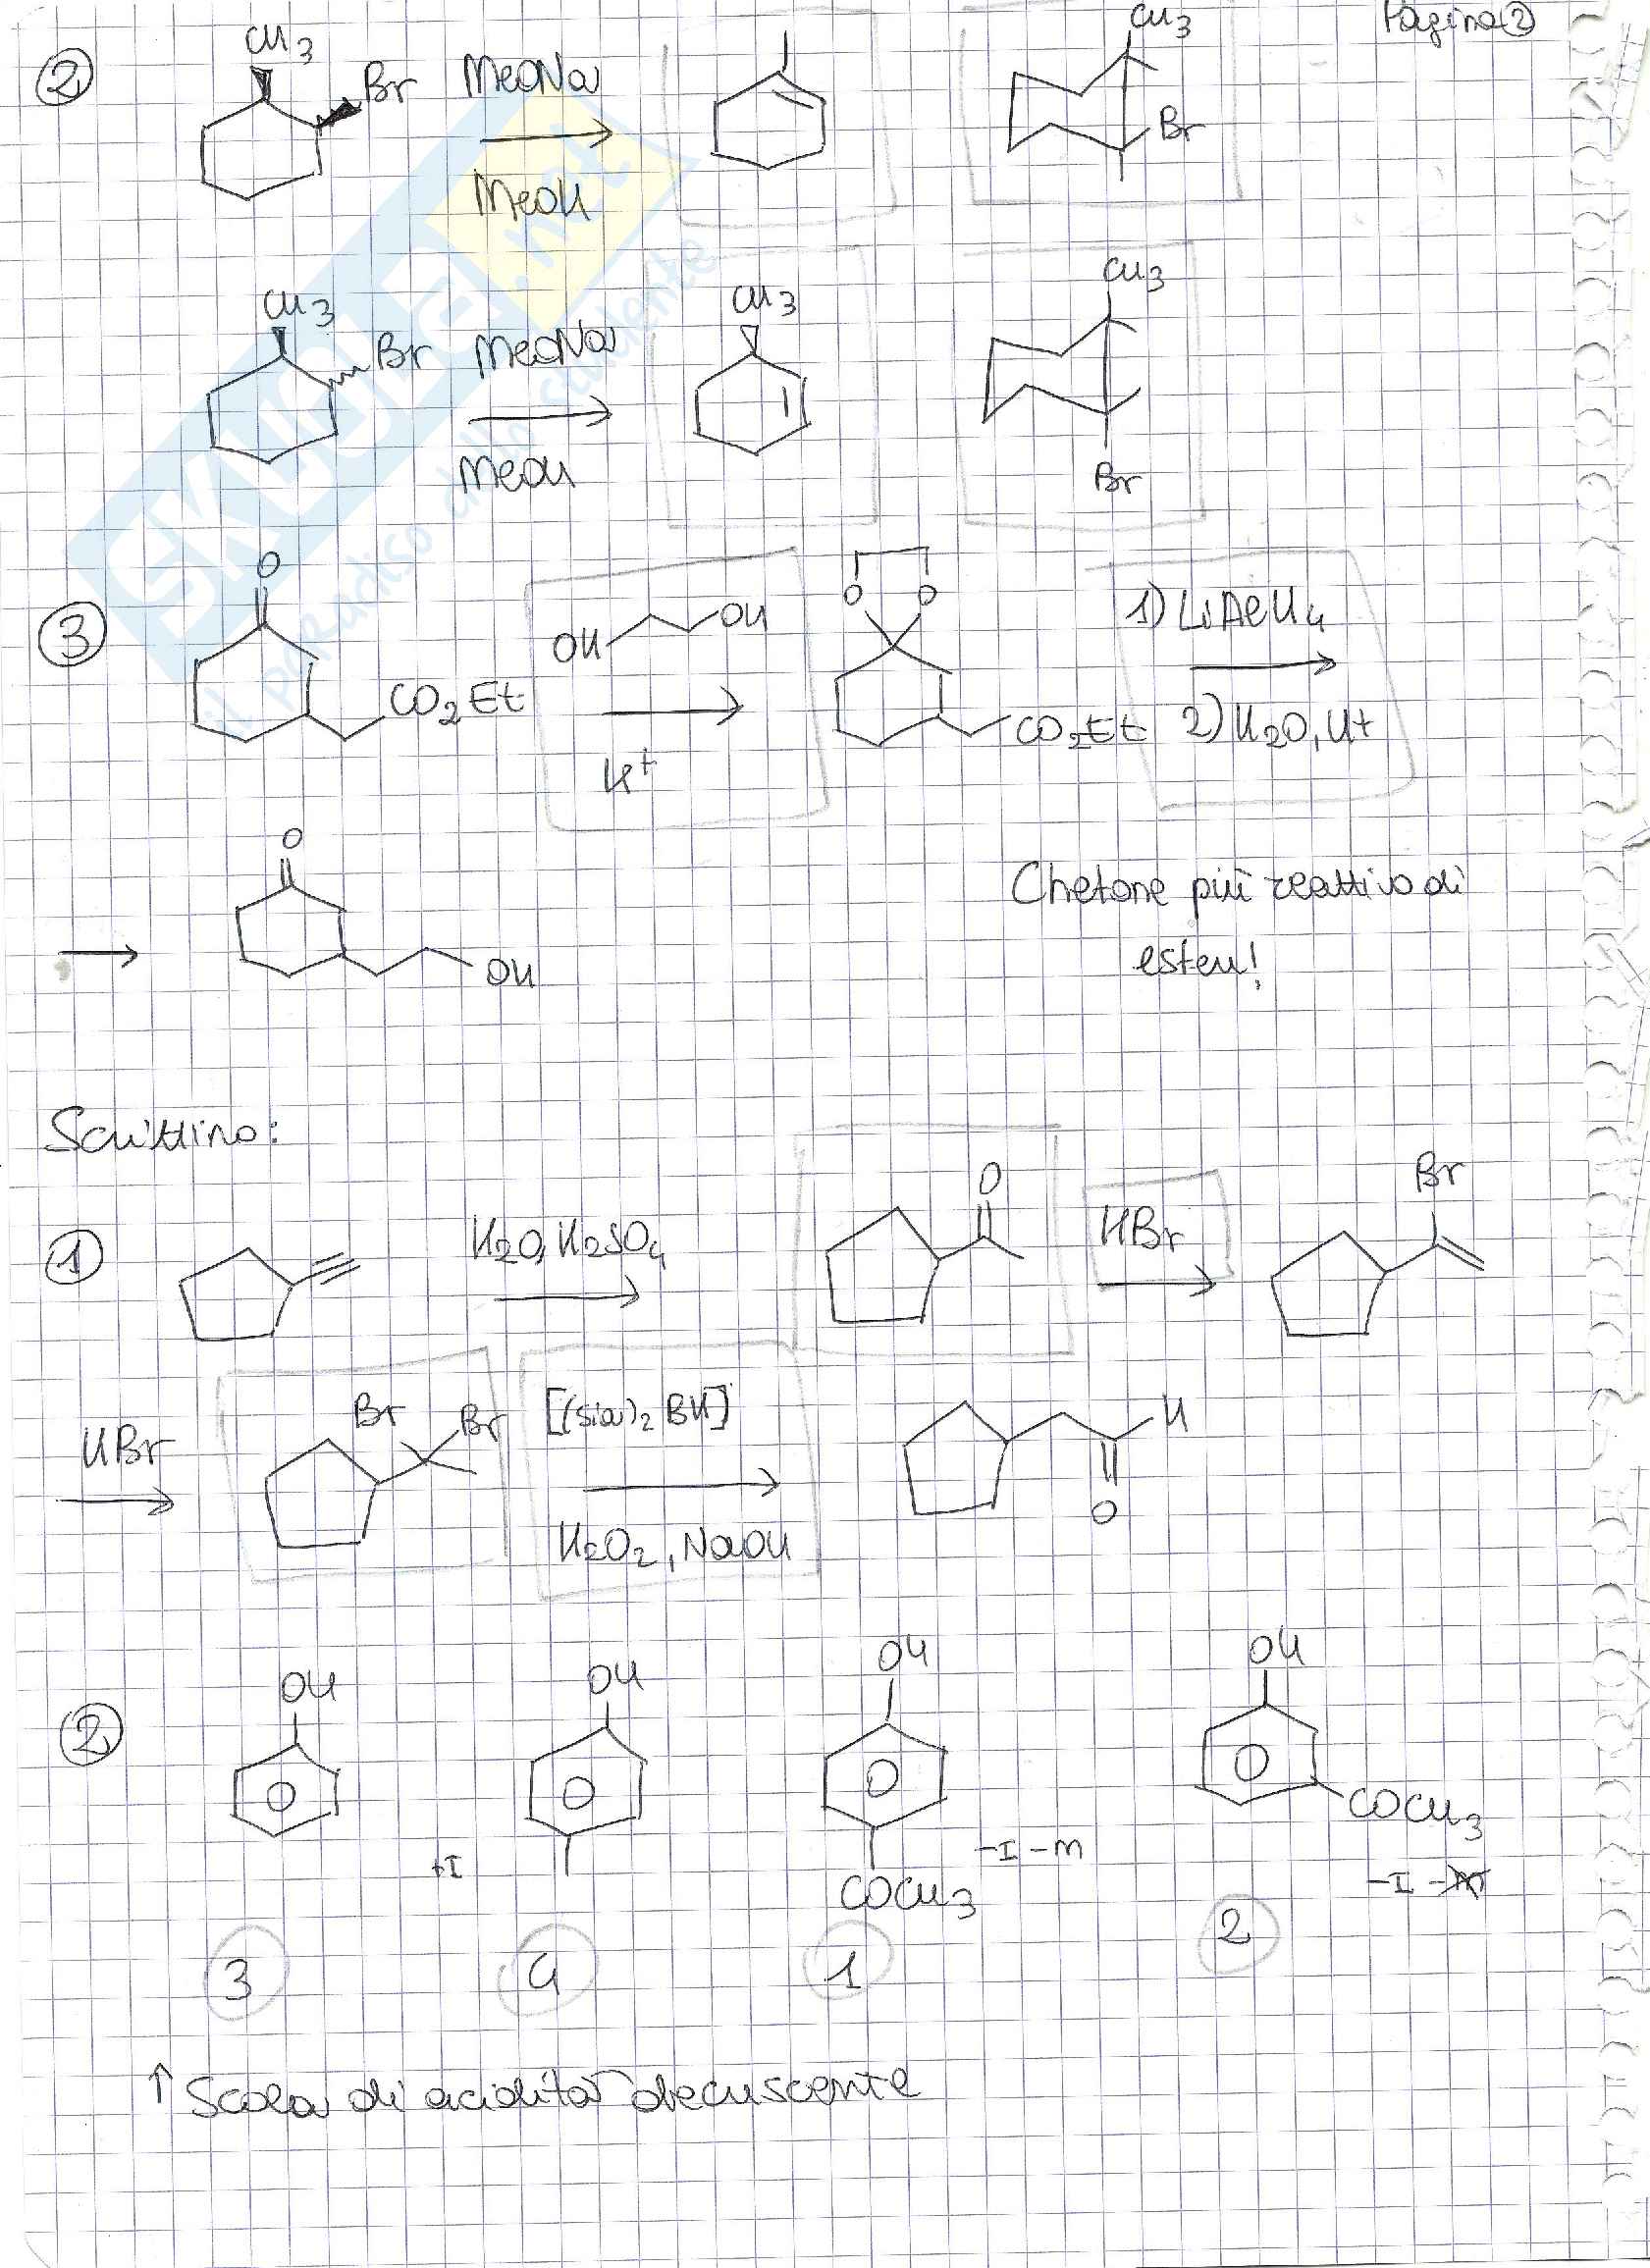 Pagina 2
2
CH3
Br
MeONa
MeOH
CH3
Br
CH3
Br
MeONa
MeOH
CH3
CH3
Br
3
O
CO2Et
OH OH
H+
O O
CO2Et
1) LiAlH4
2) H2O, H+
O
OH
Chetone più reattivo di
esteri!
Scrittino:
1
H2O, H2SO4
O
HBr
Br
HBr
Br Br
[(sia)2 BH]
H2O2, NaOH
H
O
2
OH
OH
+I
OH
COCH3
-I -M
OH
COCH3
-I -M
3 4 1 2
↑ Scala di acidità decrescente
SKUOLA.net
il paradiso dello studente